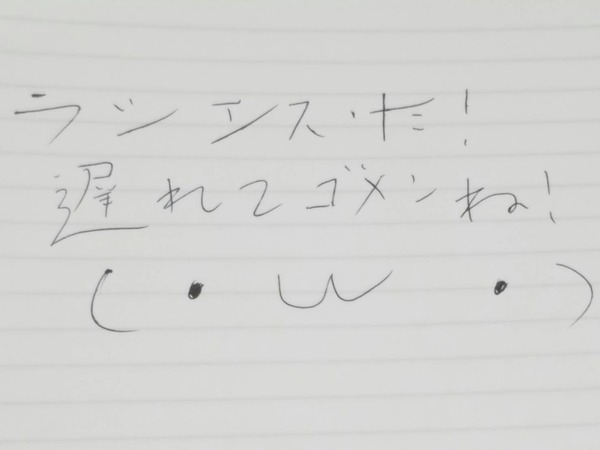 ラジエンスだ!
遅れてゴメンね!
(・ω・)